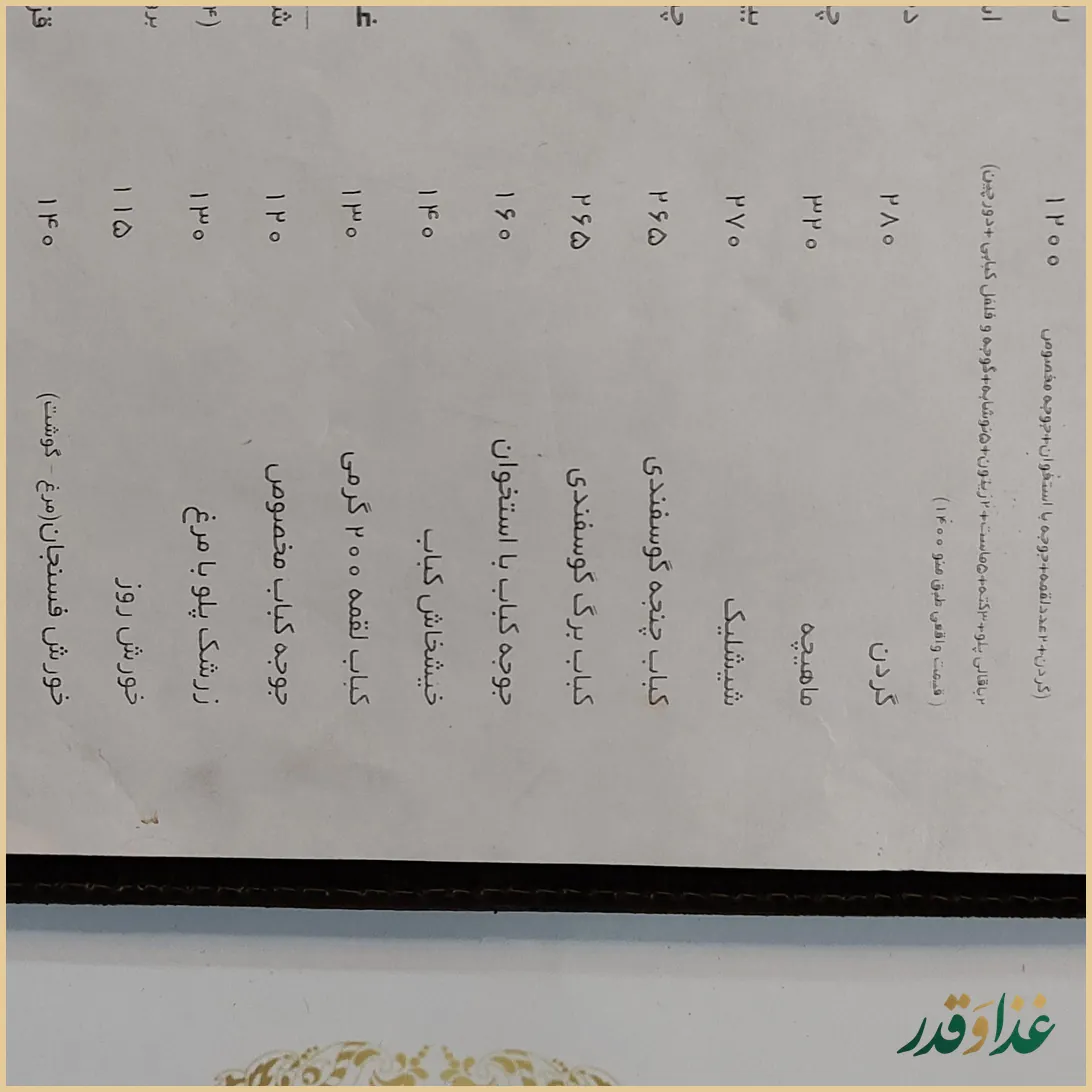 (گردن+۲عددلقمه+جوجه با استخوان+جوجه مخصوص ۱۲۰۰
۲باقالی پلو+۳کته+۵ماست+۲زیتون+۵نوشابه+گوجه و فلفل کبابی+دورچین)
(قیمت واقعی طبق منو ۱۴۰۰)
گردن ۲۸۰
ماهیچه ۳۲۰
شیشلیک ۲۷۰
کباب چنجه گوسفندی ۲۶۵
کباب برگ گوسفندی ۲۶۵
جوجه کباب با استخوان ۱۶۰
خیشخاش کباب ۱۴۰
کباب لقمه ۲۰۰ گرمی ۱۳۰
جوجه کباب مخصوص ۱۲۰
زرشک پلو با مرغ ۱۳۰
خورش روز ۱۱۵
خورش فسنجان(مرغ - گوشت) ۱۴۰
غذا و قدر